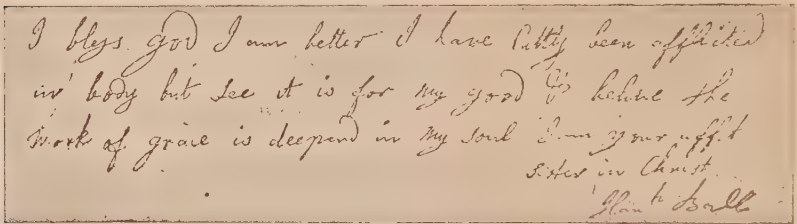 I bless God I am better I have been afflicted
in body but see it is for my good & believe the
Work of grace is deepend in my soul I am your afft
sister in Christ
Hanh Ball